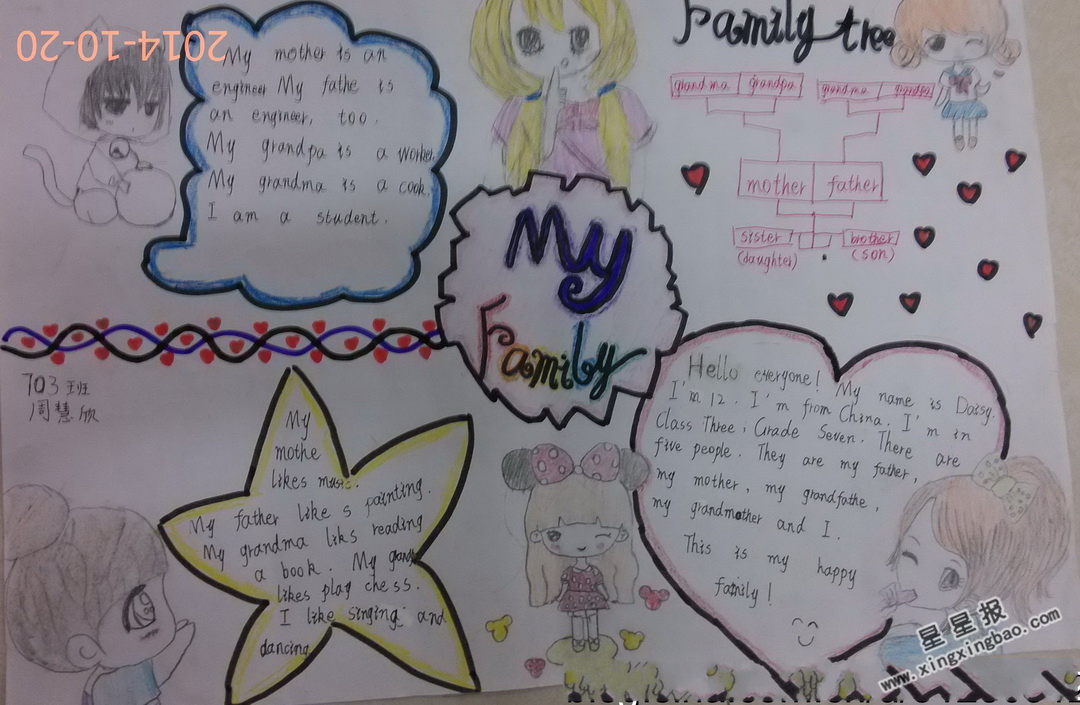 2014-10-20
My mother is an
engineer My fathe is
an engineer, too.
My grandpa is a worker.
My grandma is a cook.
I am a student.
Family tree
grandma grandpa grandma grandpa
mother father
sister brother
(daughter) (son)
My
Family
703班
周慧欣
My
mothe
likes music.
My father like s painting.
My grandma liks reading
a book. My grandpa
likes play chess.
I like singing and
dancing
Hello everyone! My name is Daisy.
I'm 12. I'm from China. I'm in
Class Three, Grade Seven. There are
five people. They are my father,
my mother, my grandfathe,
my grandmother and I.
This is my happy
family!
星星报
www.xingxingbao.com